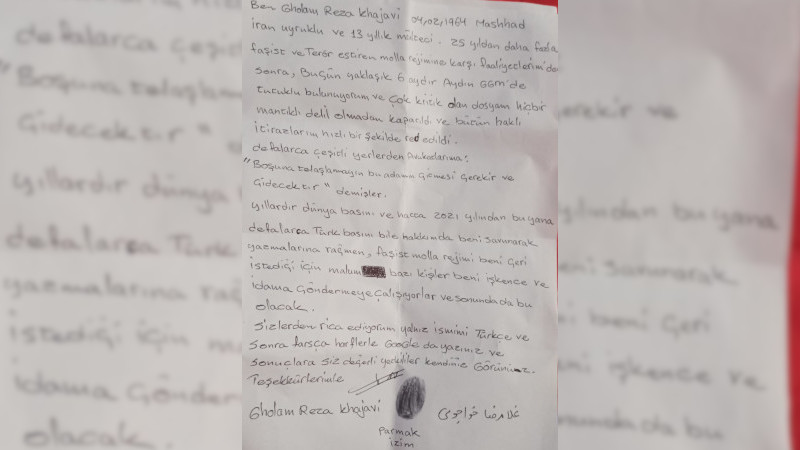 Ben Gholam Reza Khajavi 04,02,1964 Mashhad
iran uyruklu ve 13 yıllık mülteci. 25 yıldan daha fazla
faşist ve Terör estiren molla rejimine karşı faaliyetlerim'den
sonra, Bugün yaklaşık 6 aydır Aydın GGM'de
tutuklu bulunuyorum ve çok kritik olan dosyam hiçbir
mantıklı delil olmadan kapatıldı ve bütün haklı
itirazlarım hızlı bir şekilde red edildi.
defalarca çeşitli yerlerden Avukatlarıma:
"Boşuna telaşlamayın bu adamın Gitmesi Gerekir ve
Gidecektir" demişler.
yıllardır dünya basını ve hatta 2021 yılından bu yana
defalarca Türk basını bile hakkımda beni savunarak
yazmalarına rağmen, faşist molla rejimi beni Geri
istediği için malum bazı kişiler beni işkence ve
idama Göndermeye çalışıyorlar ve sonunda da bu
olacak.
Sizlerden rica ediyorum yalnız ismimi Türkçe ve
sonra farsça harflerle Google da yazınız ve
sonuçlara siz değerli yetkililer kendiniz Görünüz.
Teşekkürlerimle
Gholam Reza Khajavi غلامرضا خواجوی
Parmak
izim